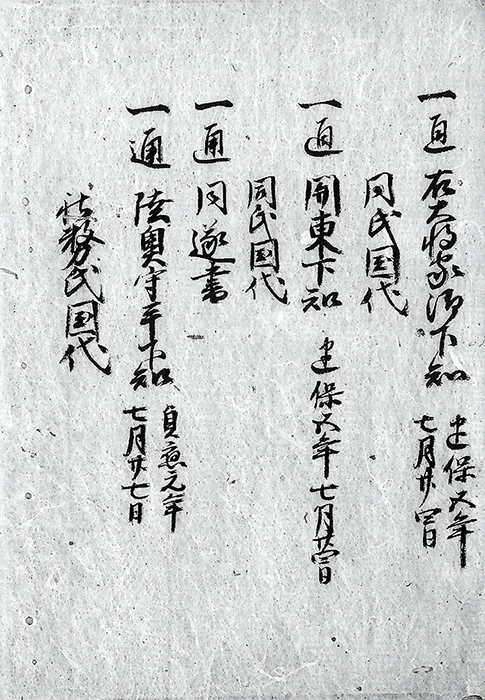 一通 右大将家御下知 建保五年
七月廿四日
同氏国代
一通 関東下知 建保五年七月廿四日
同氏国代
一通 同遂書
一通 陸奥守平下知 貞応元年
七月廿七日
社務氏国代